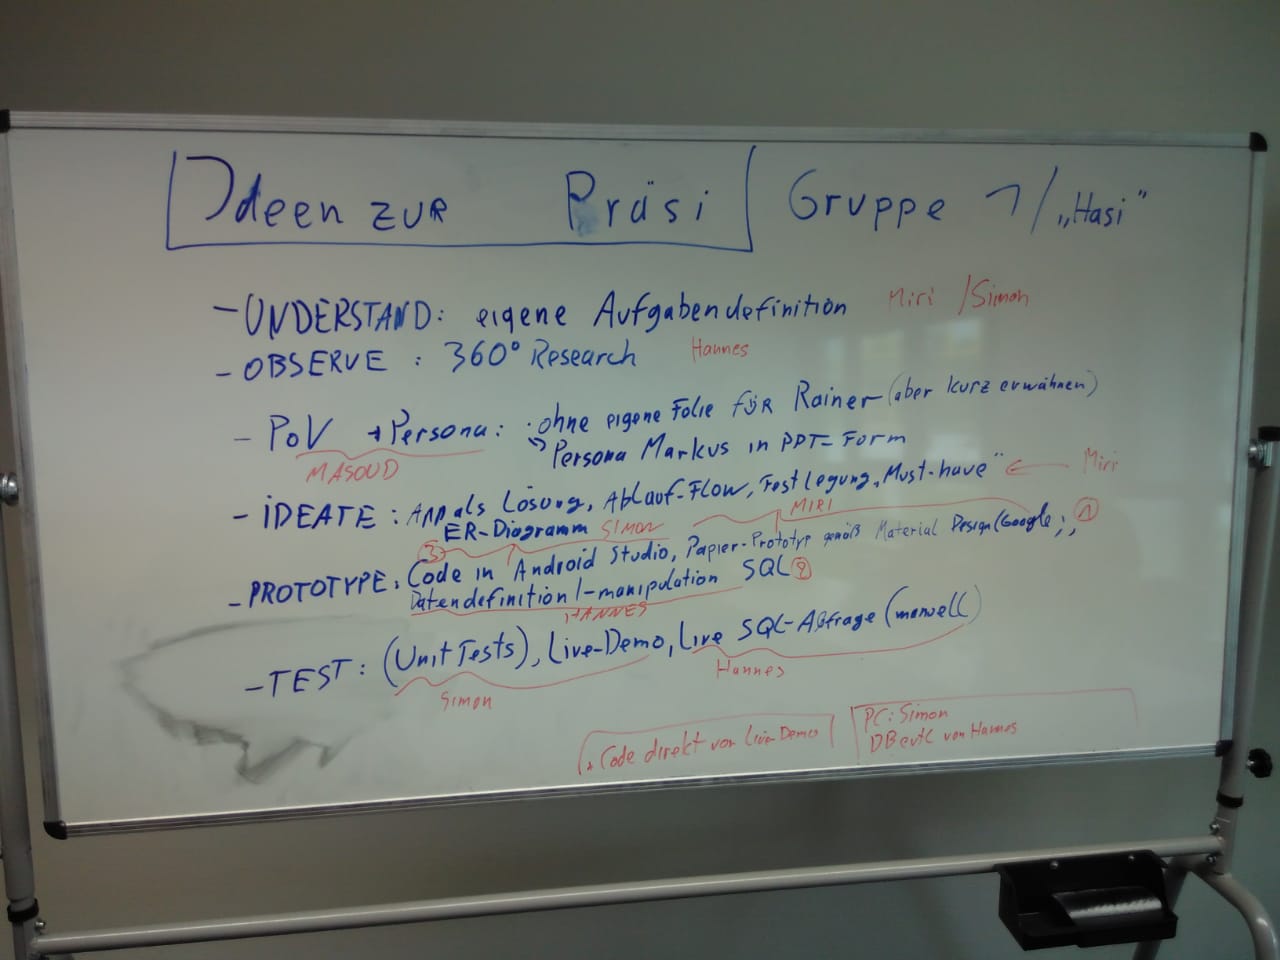 Ideen zur Präsi Gruppe 1/ „Hasi"
- UNDERSTAND: eigene Aufgabendefinition Miri / Simon
- OBSERVE : 360° Research Hannes
- PoV + Persona: · ohne eigene Folie für Rainer (aber kurz erwähnen)
MASOUD
Persona Markus in PPT-Form
- IDEATE : App als Lösung, Ablauf-Flow, Festlegung „Must-have" ← Miri
ER-Diagramm SIMON MIRI
- PROTOTYPE: Code in Android Studio, Papier-Prototyp gemäß Material Design (Google ; , 1
3
Datendefinition/-manipulation SQL 2
HANNES
- TEST: (Unit Tests), Live-Demo, Live SQL-Abfrage (manuell)
Simon Hannes
Code direkt vor Live-Demo
PC: Simon
DB evtl. von Hannes